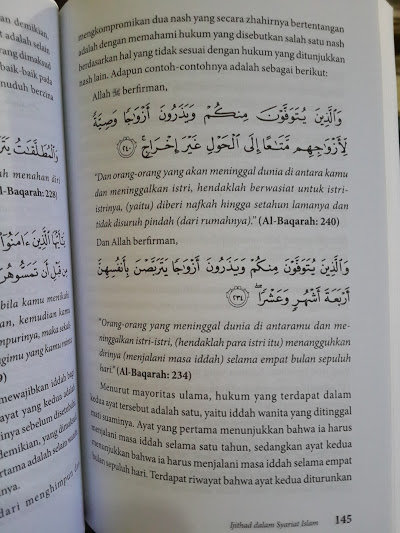 demikian.
adalah selain
yang dimaksud
baik-baik pada
nuduh berzina
وَالْمُطَلَّقَاتُ
menahan diri
Al-Baqarah: 228)
يَٰٓأَيُّهَا الَّذِينَ ءَامَنُوٓا
مِن قَبْلِ أَن تَمَسُّوهُنَّ
bila kamu menikahi
an, kemudian kamu
mpurinya, maka sekali
ngimu yang kamu minta
9)
mewajibkan iddah bagi
ayat yang kedua adalah
nya sebelum disetubuhi.
demikian, yang dimaksud
ertama adalah selain
nya.
dari menghimpun
mengkompromikan dua nash yang secara zhahirnya bertentangan
adalah dengan memahami hukum yang disebutkan salah satu nash
berdasarkan hal yang tidak sesuai dengan hukum yang ditunjukkan
nash lain. Adapun contoh-contohnya adalah sebagai berikut:
Allah ﷻ berfirman,
وَالَّذِينَ يُتَوَفَّوْنَ مِنكُمْ وَيَذَرُونَ أَزْوَٰجًا وَصِيَّةً
لِّأَزْوَٰجِهِم مَّتَٰعًا إِلَى الْحَوْلِ غَيْرَ إِخْرَاجٍ ۚ ﴿٢٤٠﴾
"Dan orang-orang yang akan meninggal dunia di antara kamu
dan meninggalkan istri, hendaklah berwasiat untuk istri-
istrinya, (yaitu) diberi nafkah hingga setahun lamanya dan
tidak disuruh pindah (dari rumahnya)." (Al-Baqarah: 240)
Dan Allah berfirman,
وَالَّذِينَ يُتَوَفَّوْنَ مِنكُمْ وَيَذَرُونَ أَزْوَٰجًا يَتَرَبَّصْنَ بِأَنفُسِهِنَّ
أَرْبَعَةَ أَشْهُرٍ وَعَشْرًا ۖ ﴿٢٣٤﴾
"Orang-orang yang meninggal dunia di antaramu dan me-
ninggalkan istri, (hendaklah para istri itu) menangguhkan
dirinya (menjalani masa iddah) selama empat bulan sepuluh
hari." (Al-Baqarah: 234)
Menurut mayoritas ulama, hukum yang terdapat dalam
kedua ayat tersebut adalah satu, yaitu iddah wanita yang ditinggal
mati suaminya. Ayat yang pertama menunjukkan bahwa ia harus
menjalani masa iddah selama satu tahun, sedangkan ayat kedua
menunjukkan bahwa ia harus menjalani masa iddah selama empat
bulan sepuluh hari. Terdapat riwayat bahwa ayat kedua diturunkan
Ijtihad dalam Syariat Islam 145